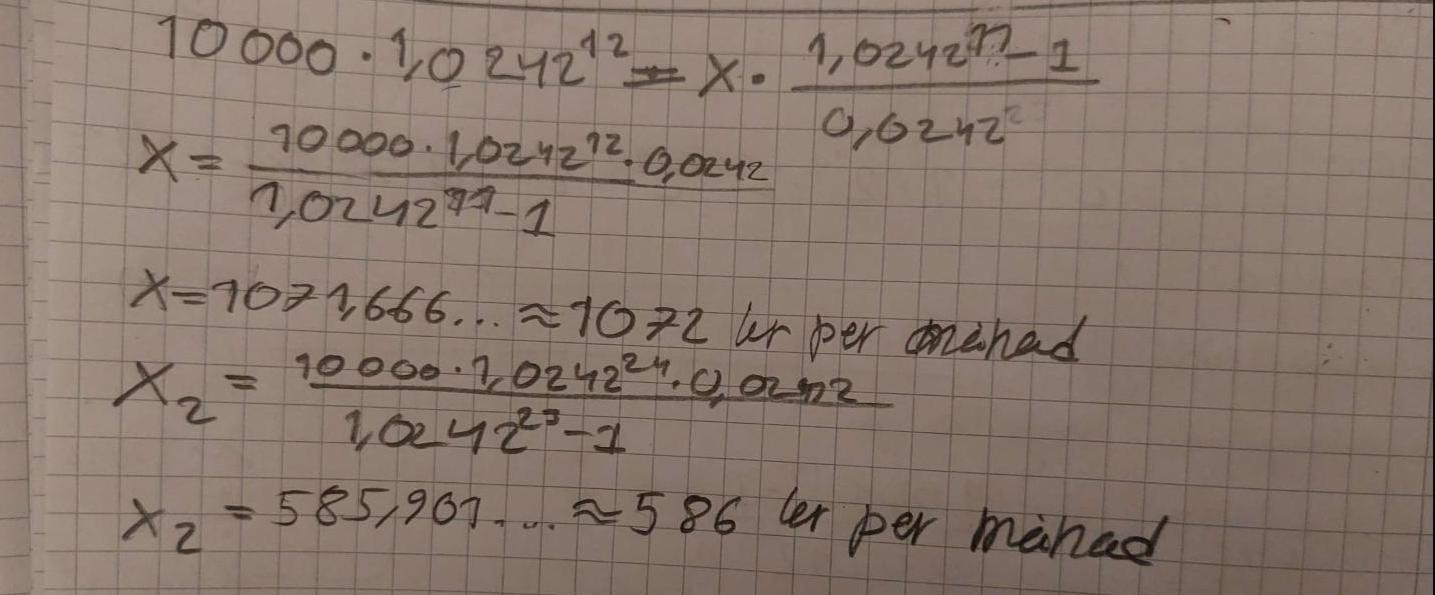 10 000 · 1,0242^12 = x · (1,0242^11 - 1) / 0,0242
x = (10 000 · 1,0242^12 · 0,0242) / (1,0242^11 - 1)
x = 1071,666... ≈ 1072 kr per månad
x₂ = (10 000 · 1,0242^24 · 0,0242) / (1,0242^23 - 1)
x₂ = 585,901... ≈ 586 kr per månad